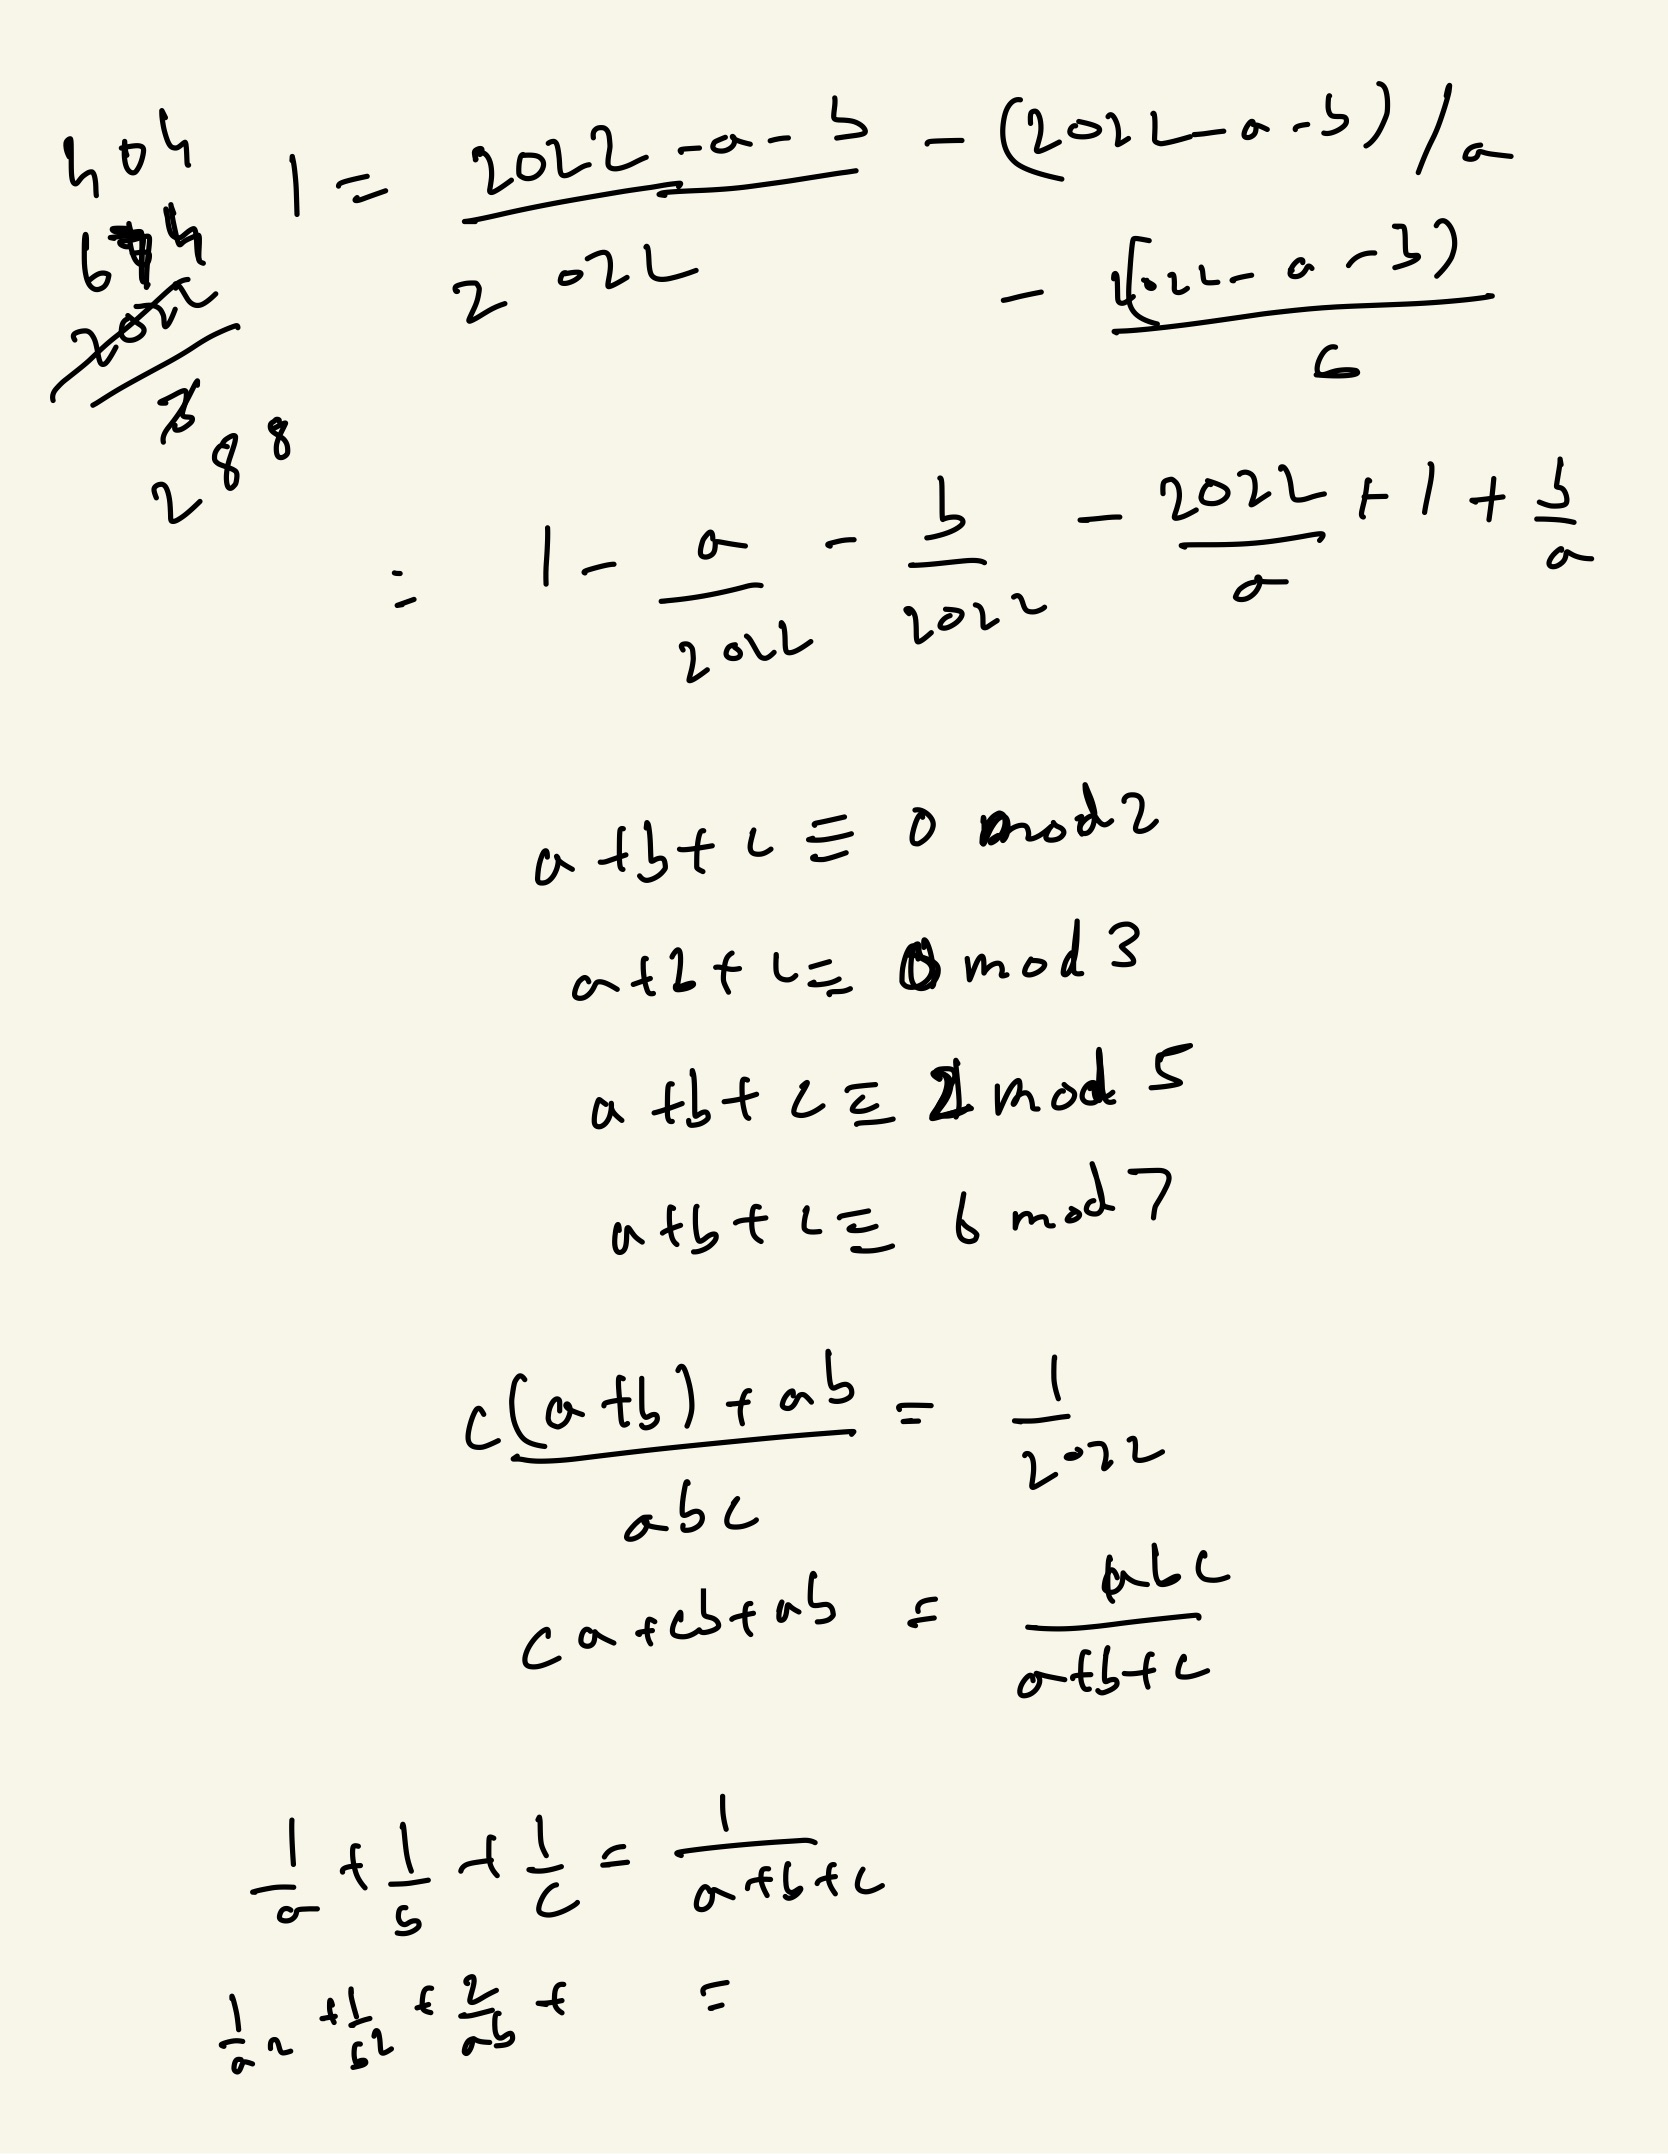 404
1 = (2022 - a - b)/2022 - (2022 - a - b)/a
- (2022 - a - b)/6
2022/3
288
= 1 - a/2022 - b/2022 - 2022/a + 1 + b/a
a + b + c ≡ 0 mod 2
a + b + c ≡ 0 mod 3
a + b + c ≡ 2 mod 5
a + b + c ≡ 6 mod 7
(c(a + b) + ab)/abc = 1/2022
ca + cb + ab = abc/(a + b + c)
1/a + 1/b + 1/c = 1/(a + b + c)
1/a² + 1/b² + 2/ab + =